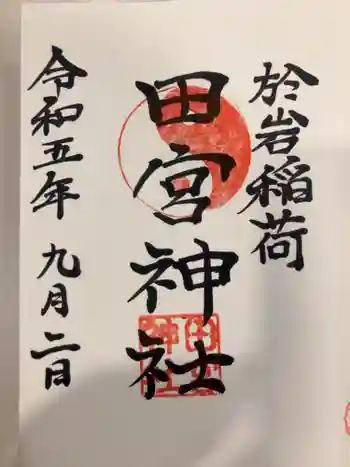 於岩稲荷
田宮神社
令和五年 九月二日